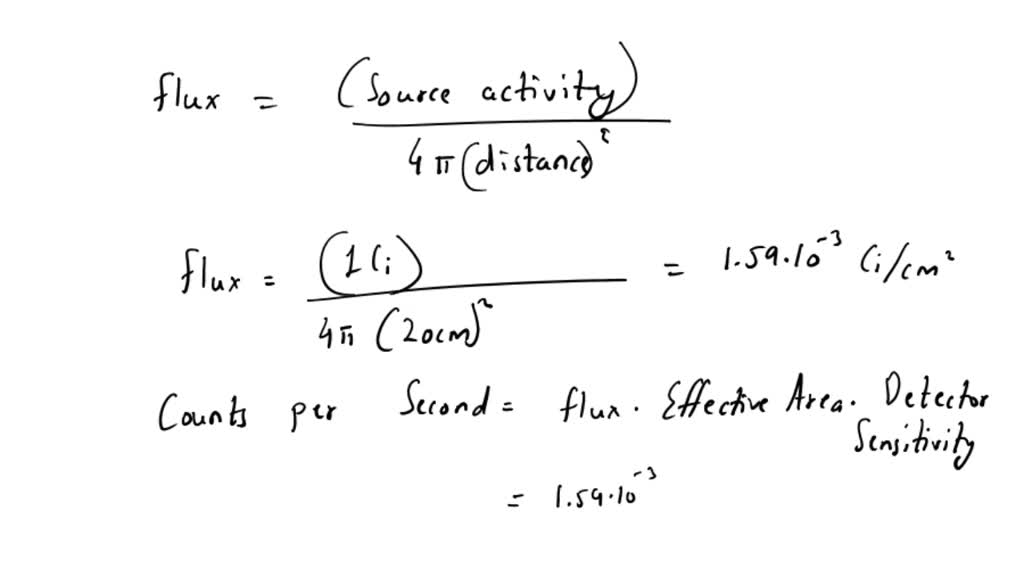 flux = (Source activity) / 4π(distance)²
flux = (1Ci) / 4π(20cm)² = 1.59·10⁻³ Ci/cm²
Counts per Second = flux · Effective Area · Detector
Sensitivity
= 1.59·10⁻³